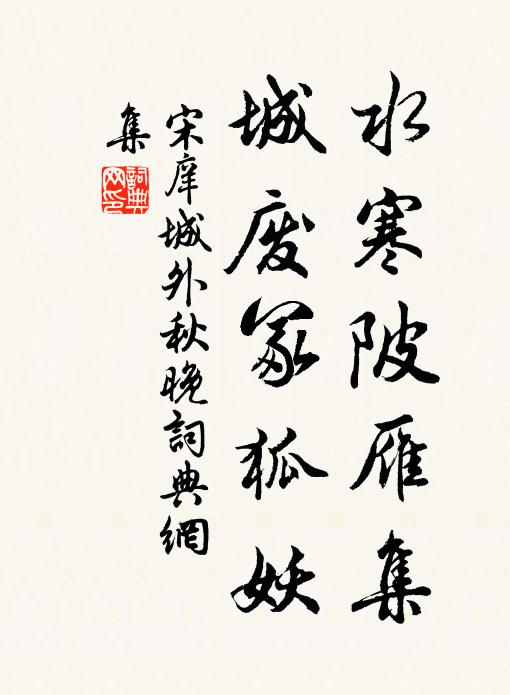 水寒陂雁集
城废冢狐妖
宋庠城外秋晚詞典網
集
詞典
网印